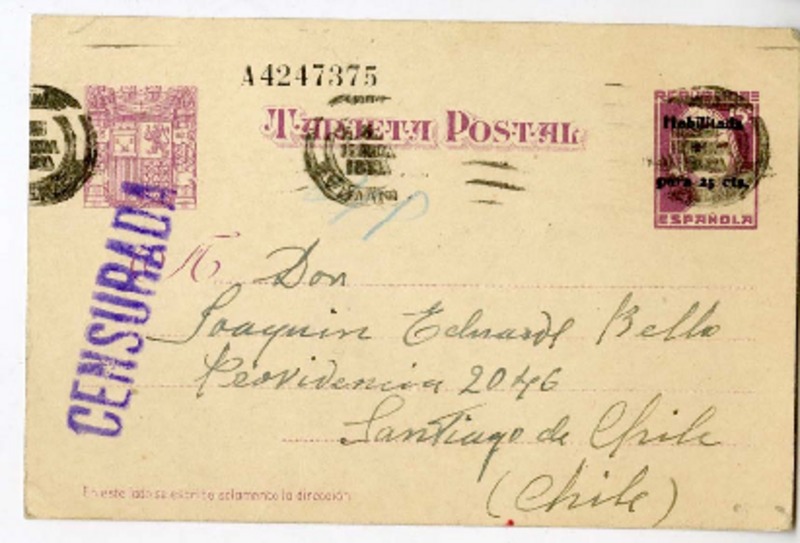 A4247375
TARJETA POSTAL
REPUBLICA
Habilitada
para 25 cts.
ESPAÑOLA
CENSURADA
A Don
Joaquin Edwards Bello
Providencia 2046
Santiago de Chile
(Chile)
En este lado se escribe solamente la dirección